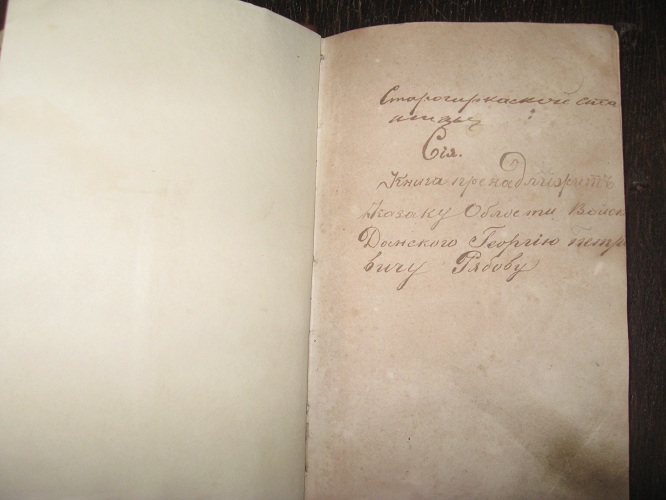 Старогиркаской ста
ницы :
Сія.
Книга пренадлѣжитъ
Казаку Области Войск
Донского Георгію петро
вичу Рябову